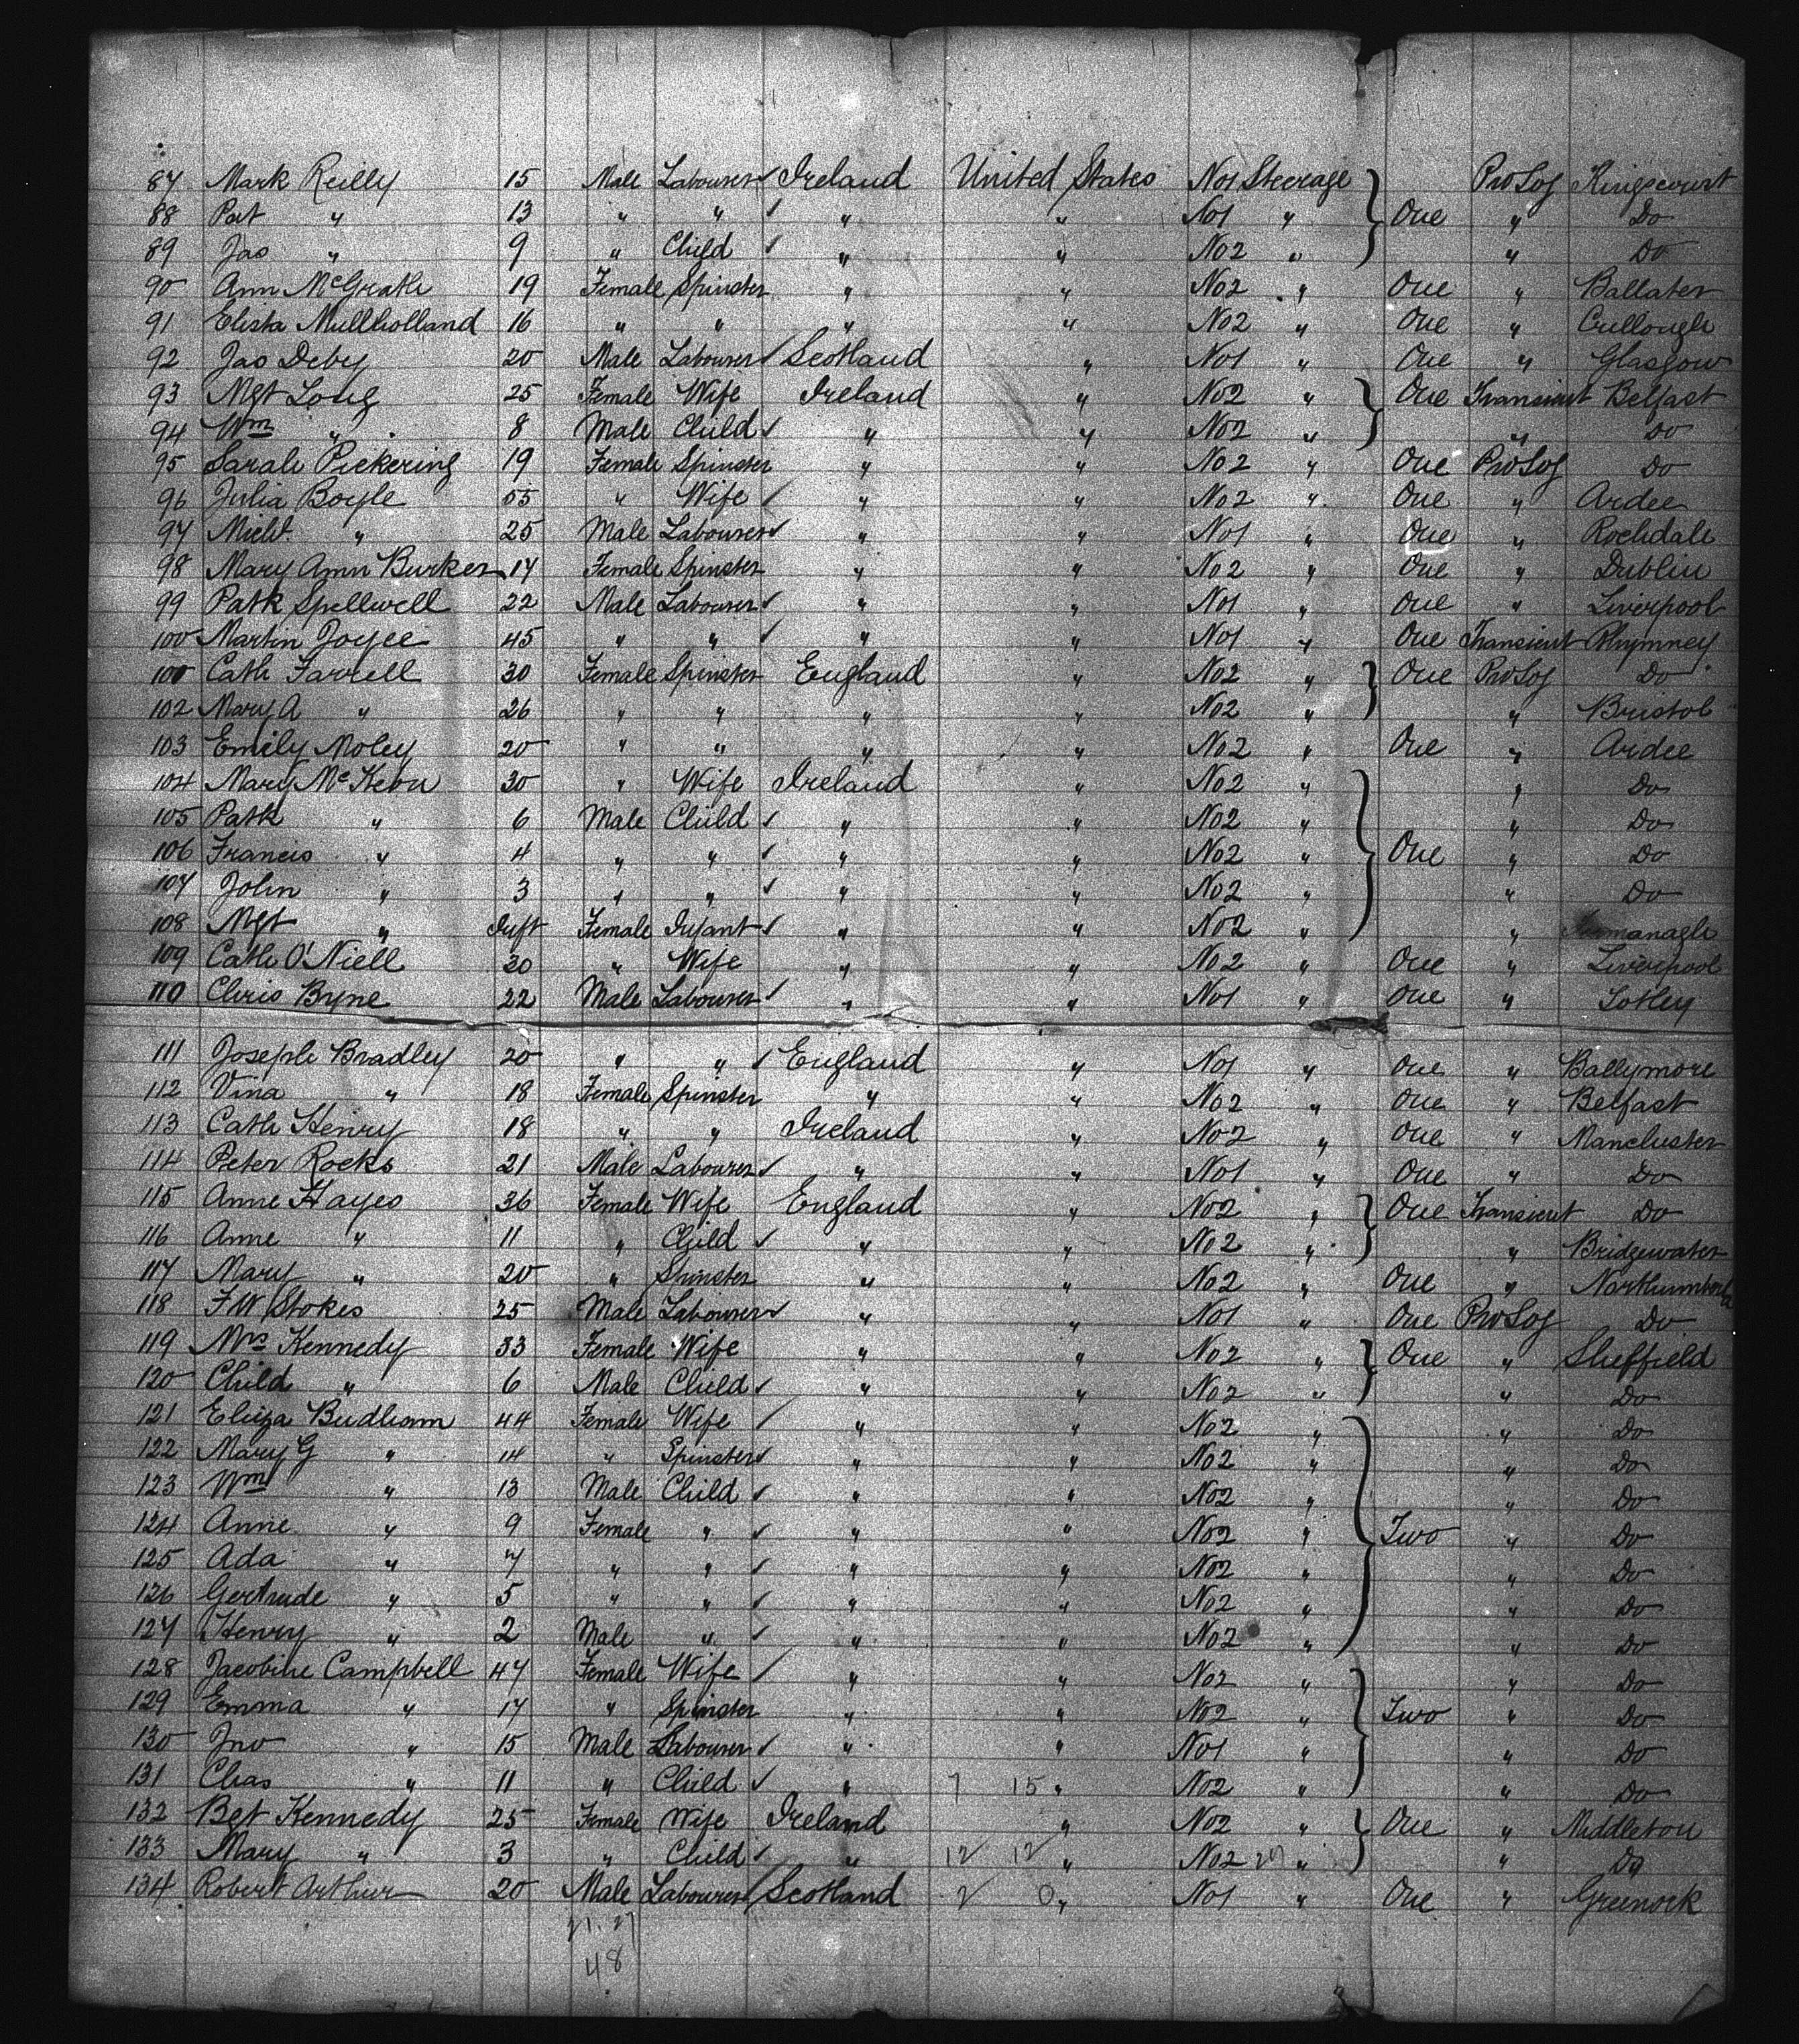 87 Mark Reilly 15 Male Labourer Ireland United States No1 Steerage Pro Soj Kingscourt
88 Pat " 13 " " " " No1 " One " Do
89 Jas " 9 " Child " " No2 " " Do
90 Ann McGrath 19 Female Spinster " " No2 " One " Ballater
91 Elista Mullholland 16 " " " " No2 " One " Cullough
92 Jas Deby 20 Male Labourer Scotland " No1 " One " Glasgow
93 Mgt Long 25 Female Wife Ireland " No2 " One Transient Belfast
94 Wm " 8 Male Child " " No2 " " Do
95 Sarah Pickering 19 Female Spinster " " No2 " One Pro Soj Do
96 Julia Boyle 55 " Wife " " No2 " One " Ardee
97 Michl " 25 Male Labourer " " No1 " One " Rochdale
98 Mary Ann Burker 17 Female Spinster " " No2 " One " Dublin
99 Patk Spellwell 22 Male Labourer " " No1 " One " Liverpool
100 Martin Joyce 45 " " " " No1 " One Transient Rhymney
101 Cath Farrell 30 Female Spinster England " No2 " One Pro Soj Do
102 Mary A " 26 " " " " No2 " " Bristol
103 Emily Moley 20 " " " " No2 " One " Ardee
104 Mary McKeon 30 " Wife Ireland " No2 " " Do
105 Patk " 6 Male Child " " No2 " " Do
106 Francis " 4 " " " " No2 " One " Do
107 John " 3 " " " " No2 " " Do
108 Mgt " Inft Female Infant " " No2 " "
109 Cath O'Niell 30 " Wife " " No2 " One " Liverpool
110 Chris Byne 22 Male Labourer " " No1 " One " Totley
111 Joseph Bradley 20 " " England " No1 " One " Ballymore
112 Vina " 18 Female Spinster " " No2 " One " Belfast
113 Cath Henry 18 " " Ireland " No2 " One " Manchester
114 Peter Rocks 21 Male Labourer " " No1 " One " Do
115 Anne Hayes 36 Female Wife England " No2 " One Transient Do
116 Anne " 11 " Child " " No2 " " Bridgewater
117 Mary " 20 " Spinster " " No2 " One "
118 F W Stokes 25 Male Labourer " " No1 " One Pro Soj Do
119 Mrs Kennedy 33 Female Wife " " No2 " One " Sheffield
120 Child " 6 Male Child " " No2 " " Do
121 Eliza Budham 44 Female Wife " " No2 " " Do
122 Mary G " 14 " Spinster " " No2 " " Do
123 Wm " 13 Male Child " " No2 " " Do
124 Anne " 9 Female " " " No2 " Two " Do
125 Ada " 7 " " " " No2 " " Do
126 Gertrude " 5 " " " " No2 " " Do
127 Henry " 2 Male " " " No2 " " Do
128 Jacobine Campbell 47 Female Wife " " No2 " " Do
129 Emma " 17 " Spinster " " No2 " Two " Do
130 Jno " 15 Male Labourer " " No1 " " Do
131 Chas " 11 " Child " 7 15 " No2 " " Do
132 Bgt Kennedy 25 Female Wife Ireland " No2 " One " Middleton
133 Mary " 3 " Child " 12 12 " No2 " " Do
134 Robert Arthur 20 Male Labourer Scotland 2 0 " No1 " One " Greenock
21 27
48